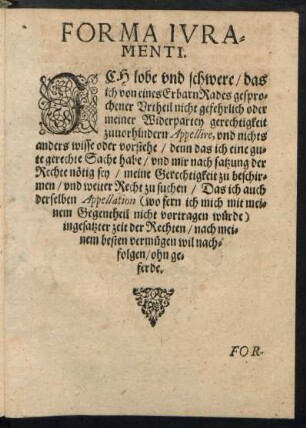 FORMA IVRA-
MENTI.
ICH lobe vnd schwere / das
ich von eines Erbarn Rades gespro-
chener Vrtheil nicht gefehrlich oder
meiner Widerpartey gerechtigkeit
zuuorhindern Appellire, vnd nichts
anders wisse oder vorstehe / denn das ich eine gu-
te gerechte Sache habe / vnd mir nach satzung der
Rechte nötig sey / meine Gerechtigkeit zu beschir-
men / vnd weiter Recht zu suchen / Das ich auch
derselben Appellation (wo fern ich mich mit mei-
nem Gegentheil nicht vortragen würde)
ingesatzter zeit der Rechten / nach mei-
nem besten vermügen wil nach-
folgen / ohn ge-
ferde.
FOR-